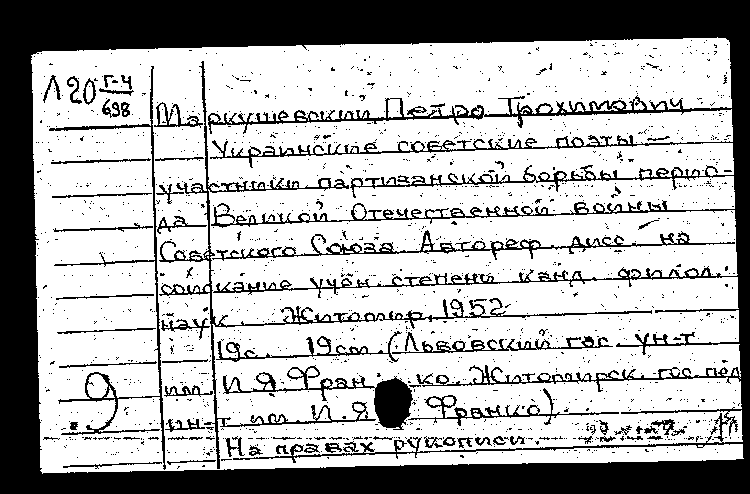 Л 20 Г-4
698
Маркушевский, Петро Трохимович
Украинские советские поэты —
участники партизанской борьбы перио-
да Великой Отечественной войны
Советского Союза. Автореф. дисс. на
соискание учен. степени канд. филол.
наук. Житомир, 1952
19 с. 19 см. (Львовский гос. ун-т
им. И.Я. Франко. Житомирск. гос. пед.
ин-т им. И.Я. Франко).
На правах рукописи.
9